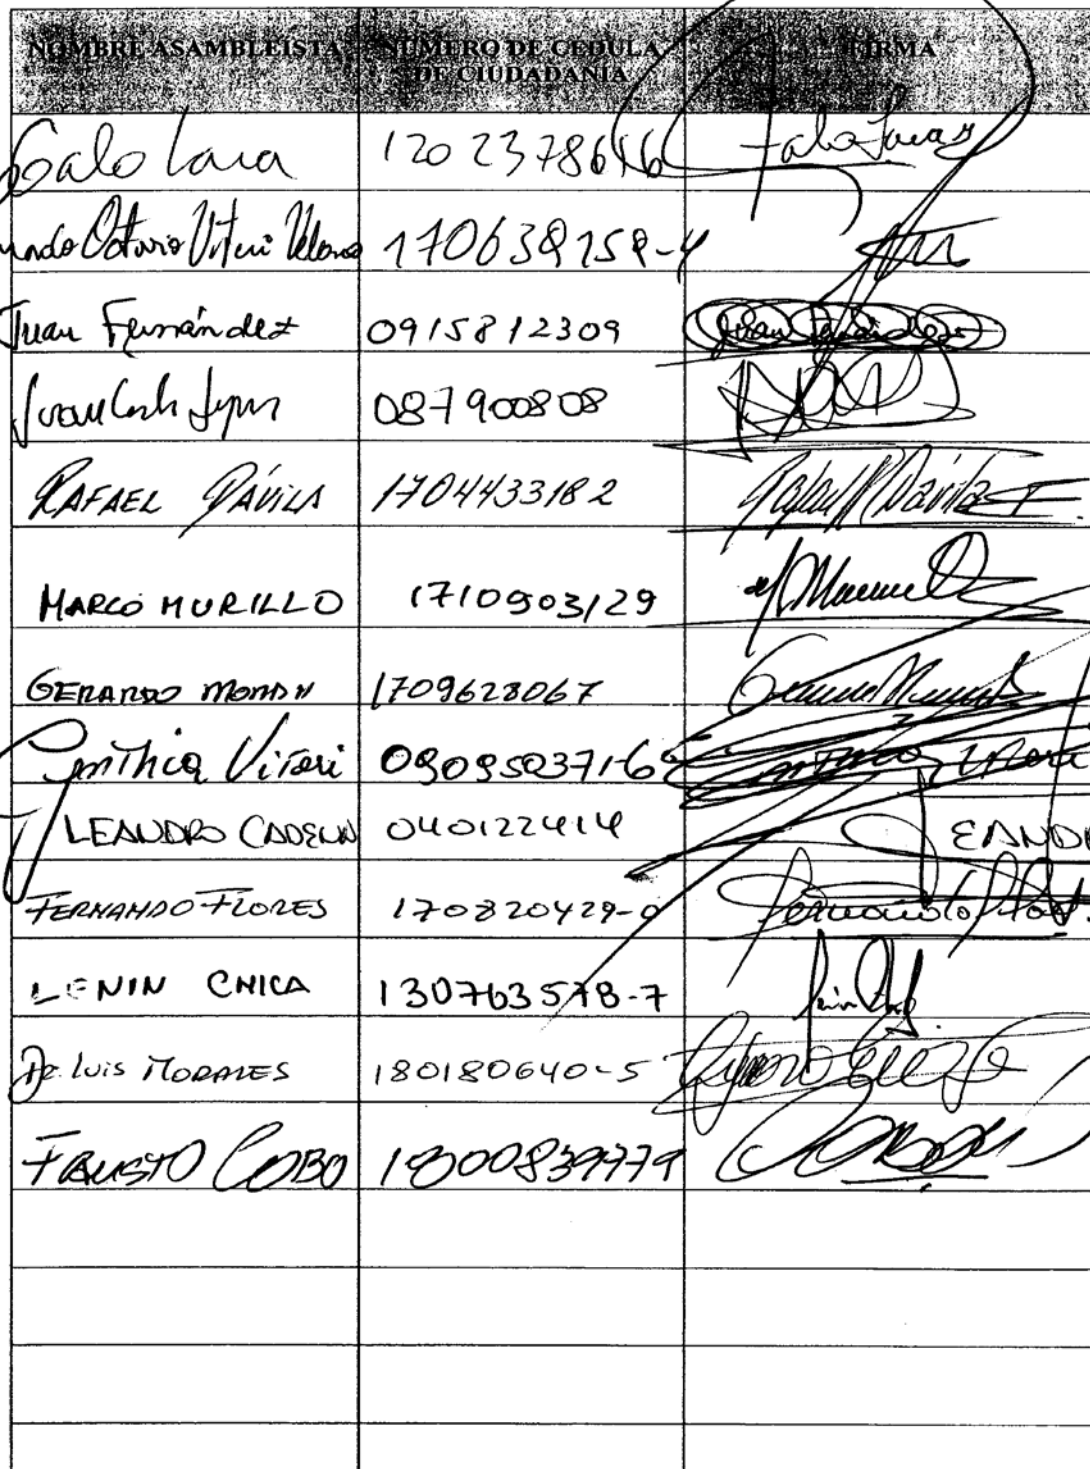 NOMBRE ASAMBLEISTA NUMERO DE CEDULA DE CIUDADANIA FIRMA
Galo Lara 1202378616 Galo Lara
Octavio Viteri
Juan Fernández 0915812309 Juan Fernández
Juan Carlos 087900808
RAFAEL DÁVILA 1704433182 Rafael Dávila
MARCO MURILLO 1710903129
GERARDO MORÁN 1709628067
Cynthia Viteri 090950371-6 Viteri
LEANDRO CADENA 040122414
FERNANDO FLORES 170820429-0 Fernando
LENIN CHICA 130763578-7
Dr. LUIS MORALES 180180640-5
FAUSTO COBO 1800839779